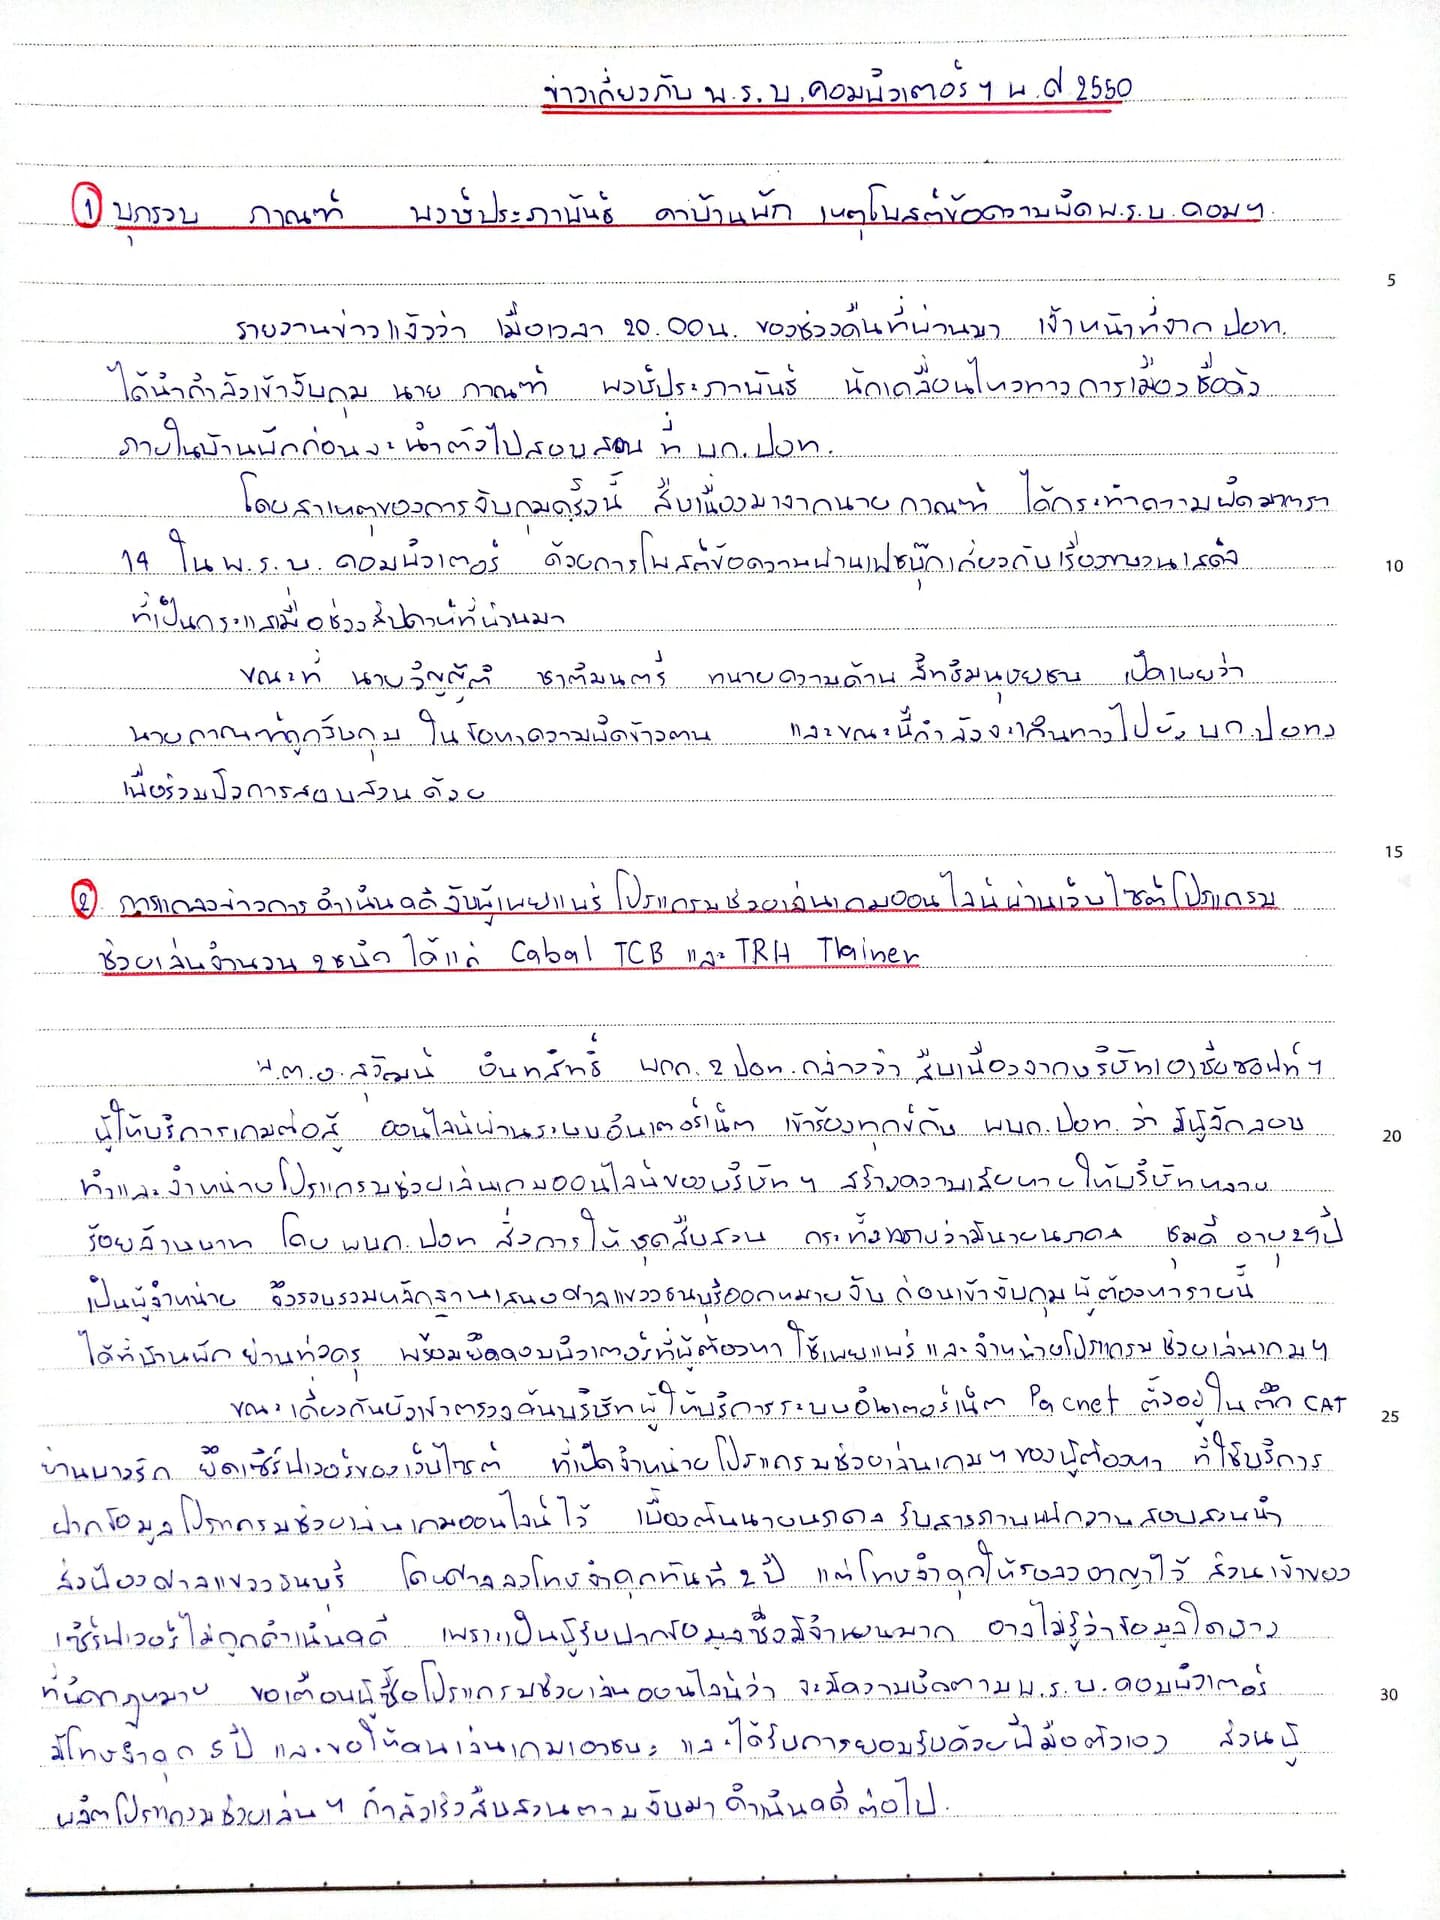 ข่าวเกี่ยวกับ พ.ร.บ.คอมพิวเตอร์ ฯ พ.ศ 2550
1 บุกรวบ กาณฑ์ พงษ์ประภาพันธ์ คาบ้านพัก เหตุโพสต์ข้อความผิดพ.ร.บ.คอมฯ
5
รายงานข่าวแจ้งว่า เมื่อเวลา 20.00น. ของช่วงคืนที่ผ่านมา เจ้าหน้าที่จาก ปอท.
ได้นำกำลังเข้าจับกุม นาย กาณฑ์ พงษ์ประภาพันธ์ นักเคลื่อนไหวทางการเมืองชื่อดัง
ภายในบ้านพักก่อนจะนำตัวไปสอบสวน ที่ บก.ปอท.
โดยสาเหตุของการจับกุมครั้งนี้ สืบเนื่องมาจากนาย กาณฑ์ ได้กระทำความผิดมาตรา
14 ใน พ.ร.บ. คอมพิวเตอร์ ด้วยการโพสต์ข้อความผ่านเฟซบุ๊กเกี่ยวกับเรื่องขบวนเสด็จ
10
ที่เป็นกระแสเมื่อช่วงสัปดาห์ที่ผ่านมา
ขณะที่ นายวิญญัติ ชาติมนตรี ทนายความด้านสิทธิมนุษยชน เปิดเผยว่า
นายกาณฑ์ถูกจับกุม ในข้อหาความผิดข้างต้น และขณะนี้กำลังจะเดินทางไปยัง บก.ปอท.
เพื่อร่วมฟังการสอบสวนด้วย
15
2 การแถลงข่าวการดำเนินคดี จับผู้เผยแพร่ โปรแกรมช่วยเล่นเกมออนไลน์ผ่านเว็บไซต์โปรแกรม
ช่วยเล่นจำนวน 2ชนิด ได้แก่ Cabal TCB และ TRH Trainer
พ.ต.อ.สุวัฒน์ อินทสิทธิ์ ผกก.2 ปอท.กล่าวว่า สืบเนื่องจากบริษัทเอเชียซอฟท์ฯ
ผู้ให้บริการเกมต่อสู้ ออนไลน์ผ่านระบบอินเตอร์เน็ต เข้าร้องทุกข์กับ ผบก.ปอท. ว่า มีผู้ลักลอบ
20
ทำและจำหน่ายโปรแกรมช่วยเล่นเกมออนไลน์ของบริษัท ฯ สร้างความเสียหายให้บริษัทหลาย
ร้อยล้านบาท โดย ผบก.ปอท สั่งการให้ ชุดสืบสวน กระทั่งทราบว่ามีนายนภดล ชุมดี อายุ29ปี
เป็นผู้จำหน่าย จึงรวบรวมหลักฐานเสนอศาลแขวงธนบุรีออกหมายจับ ก่อนเข้าจับกุมผู้ต้องหารายนี้
ได้ที่บ้านพัก ย่านท่งครุ พร้อมยึดคอมพิวเตอร์ที่ผู้ต้องหา ใช้เผยแพร่ และจำหน่ายโปรแกรม ช่วยเล่นเกมฯ
ขณะเดียวกันยังเข้าตรวจค้นบริษัทผู้ให้บริการระบบอินเตอร์เน็ต Pacnet ตั้งอยู่ในตึก CAT
25
ย่านบางรัก ยึดเซิร์ฟเวอร์ของเว็บไซต์ ที่เปิดจำหน่ายโปรแกรมช่วยเล่นเกมฯ ของผู้ต้องหา ที่ใช้บริการ
ฝากข้อมูลโปรแกรมช่วยเล่นเกมออนไลน์ไว้ เบื้องต้นนายนภดล รับสารภาพพนักงานสอบสวนนำ
ส่งฟ้องศาลแขวงธนบุรี โดยศาลลงโทษจำคุกทันที 2 ปี แต่โทษจำคุกให้รอลงอาญาไว้ ส่วนเจ้าของ
เซิร์ฟเวอร์ไม่ถูกดำเนินคดี เพราะเป็นผู้รับฝากข้อมูลซึ่งมีจำนวนมาก อาจไม่รู้ว่าข้อมูลใดบ้าง
ที่ผิดกฎหมาย ขอเตือนผู้ซื้อโปรแกรมช่วยเล่นออนไลน์ว่า จะมีความผิดตาม พ.ร.บ.คอมพิวเตอร์
30
มีโทษจำคุก 5 ปี และขอให้คนเล่นเกมเอาชนะ และได้รับการยอมรับด้วยฝีมือตัวเอง ส่วนผู้
ผลิตโปรแกรมช่วยเล่นฯ กำลังเร่งสืบสวนตามจับมา ดำเนินคดีต่อไป.